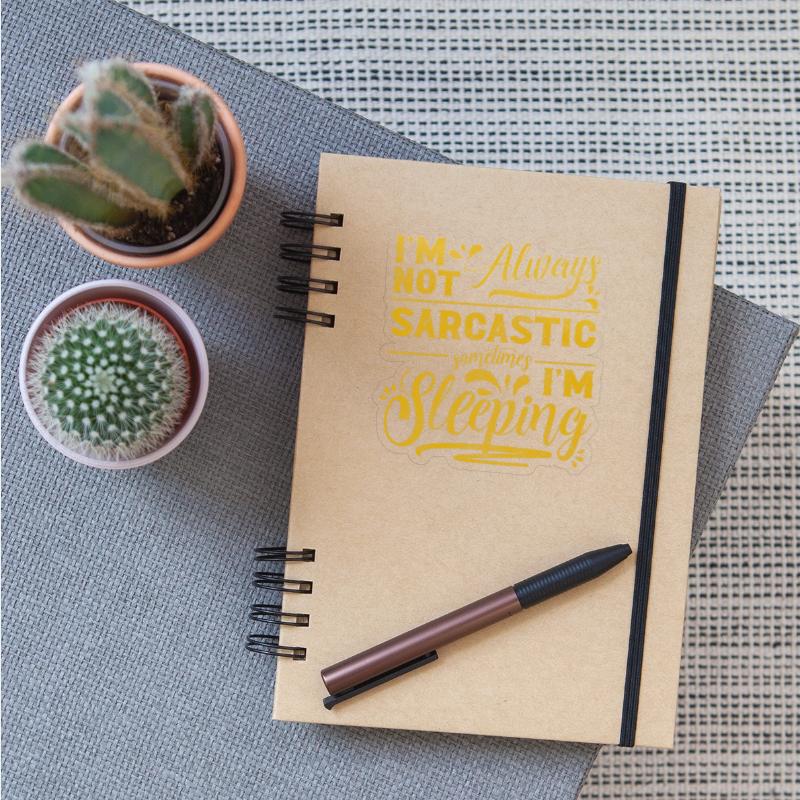 I'M Always
NOT
SARCASTIC
sometimes
I'M
Sleeping